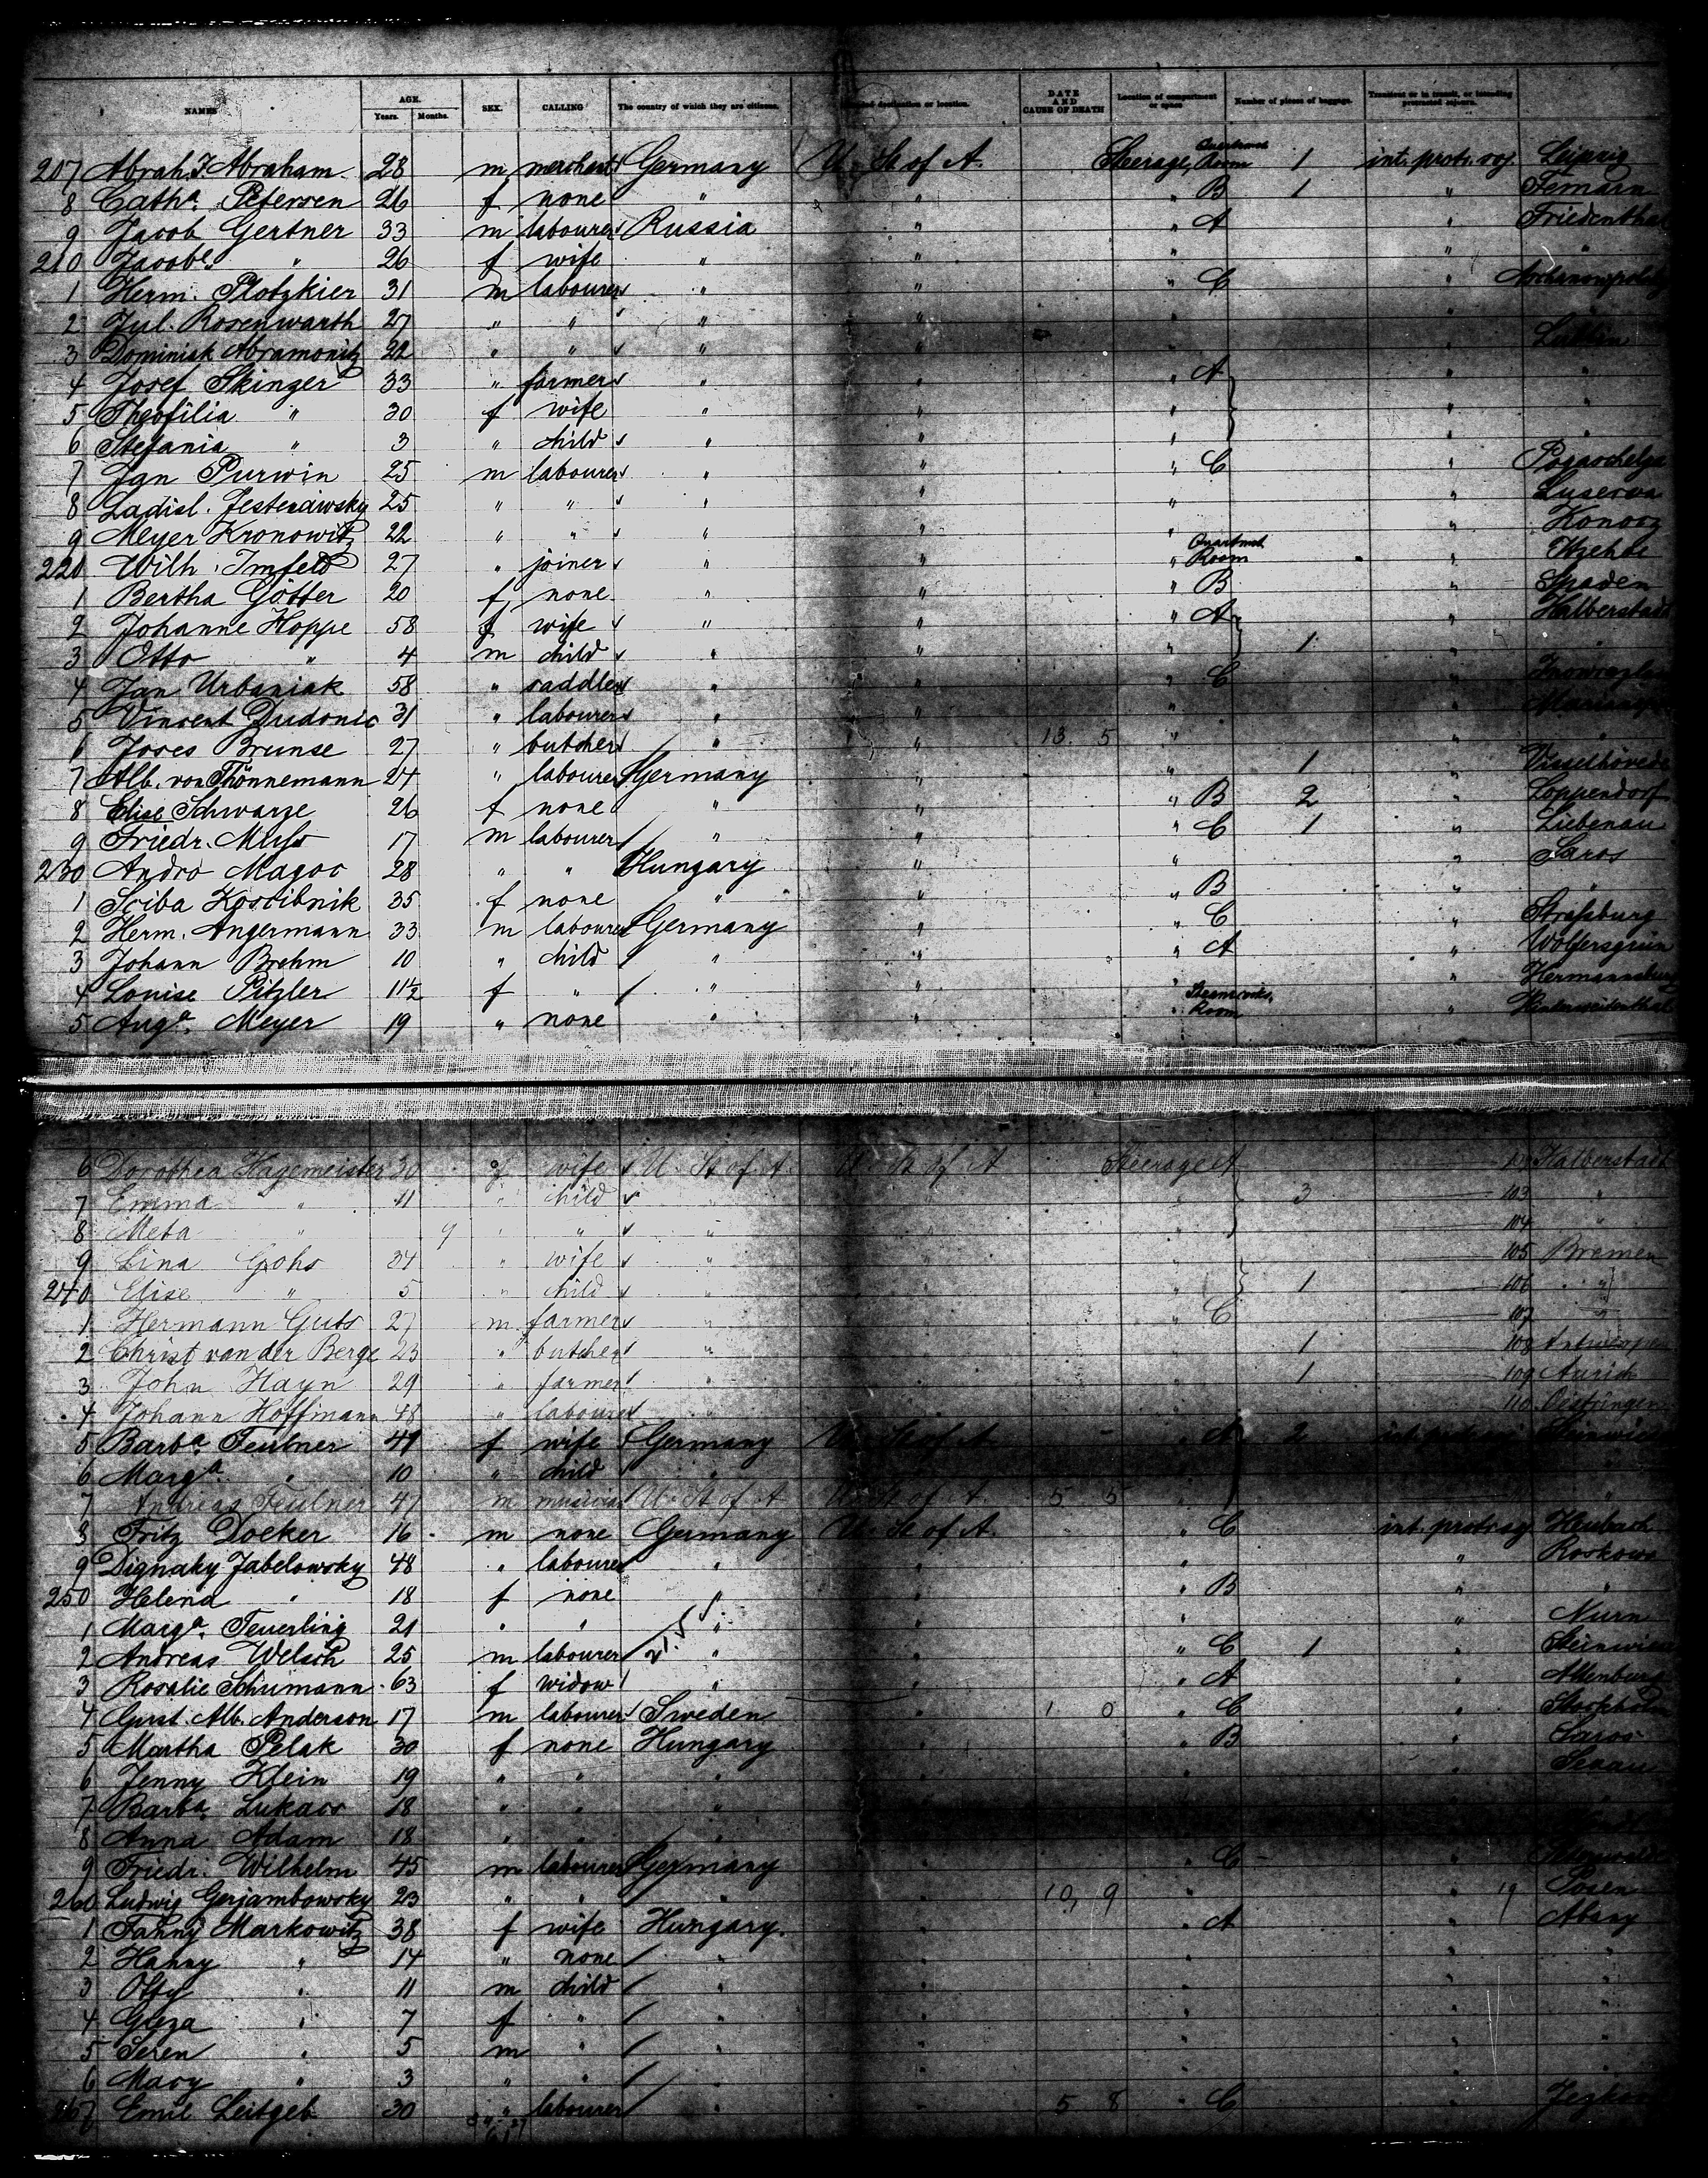 NAMES AGE. Years. Months. SEX. CALLING The country of which they are citizens. destination or location. DATE AND CAUSE OF DEATH Location of compartment or space Number of pieces of baggage. Transient or in transit, or intending protracted sojourn.
207 Abrah. J. Abraham 28 m merchant Germany U. St. of A. Steerage, Room 1 int. protr. soj. Leipzig
8 Cath.a Petersen 26 f none " " " B 1 " Femarn
9 Jacob Gertner 33 m labourer Russia " " A " Friedenthal
210 Jacobe. " 26 f wife " " " " "
1 Herm. Plotzkier 31 m labourer " " " C "
2 Jul. Rosenwarth 27 " " " " " " "
3 Dominiak Abramowitz 22 " " " " " " Lublin
4 Josef Skinger 33 " farmer " " " A " "
5 Theofilia " 30 f wife " " " " "
6 Stefania " 3 " child " " " " "
7 Jan Purwin 25 m labourer " " " C "
8 Ladisl. 25 " " " " " "
9 Meyer Kronowitz 22 " " " " " "
220 Wilh. Imfeld 27 " joiner " " " Room "
1 Bertha Götter 20 f none " " " B " Spaden
2 Johanne Hoppe 58 f wife " " " A " Halberstadt
3 Otto " 4 m child " " " 1 " "
4 Jan Urbaniak 58 " saddler " " " C "
5 Vincent Dudonic 31 " labourer " " " "
6 Joves Brunse 27 " butcher " " 13. 5 " " "
7 Alb. von Thönnemann 24 " labourer Germany " " 1 " Visselhövede
8 Elise Schwarze 26 f none " " " B 2 " Loppendorf
9 Friedr. 17 m labourer " " " C 1 " Liebenau
230 Andro Magoc 28 " " Hungary " " " Saros
1 Sciba Koscibnik 35 f none " " " B " "
2 Herm. Angermann 33 m labourer Germany " " C " Straßburg
3 Johann Brehm 10 " child " " " A " Wolfersgrün
4 Louise Pitzler 11½ f " " " " " Hermannsburg
5 Aug.a Meyer 19 " none " " " Room "
6 Dorothea Hagemeister 30 f wife U. St. of A. U. St. of A. Steerage A Halberstadt
7 Emma " 11 " child " " " 3 103 "
8 Meta " 9 " " " " " 104 "
9 Lina Gohs 34 " wife " " " 105 Bremen
240 Elise " 5 " child " " " 1 106 "
1 Hermann Guts 27 m farmer " " " C 107 "
2 Christ van der Berge 23 " butcher " " " 1 108 Antwerpen
3 John Hayn 29 " farmer " " " 1 109 Aurich
4 Johann Hoffmann 48 " labourer " " " 110 Oestringen
5 Barb.a Feulner 41 f wife Germany U. St. of A. " A 2 int. protr. soj. Steinwiesen
6 Marg.a " 10 " child " "
7 Andreas Feulner 47 m musician U. St. of A. U. St. of A. 5 5 " "
8 Fritz Docker 16 m none Germany U. St. of A. " C int. protr. soj. Heubach
9 Dignaky Jabelowsky 48 " labourer " " " " Roskowo
250 Helena " 18 f none " " " B " "
1 Marg.a Feuerling 21 " " " " " " Nurn
2 Andreas Welsch 25 m labourer " " " C 1 " Steinwiesen
3 Rosalie Schumann 63 f widow " " " A " Altenburg
4 Gust. Alb. Anderson 17 m labourer Sweden " 1 0 " C " Stockholm
5 Martha Pelak 30 f none Hungary " " B " Saros
6 Jenny Klein 19 " " " " " "
7 Barb.a Lukacs 18 " " " " " "
8 Anna Adam 18 " " " " "
9 Friedr. Wilhelm 45 m labourer Germany " " C "
260 Ludwig Gerjambowsky 23 " " " " 10, 9 " " 19 Posen
1 Fanny Markowitz 38 f wife Hungary. " " A " Abany
2 Hanny " 14 " none " " " " "
3 Otty " 11 m child " " " " "
4 Geza " 7 f " " " " " "
5 Seren " 5 m " " " " " "
6 Mary " 3 " " " " " " "
267 Emil Leitgeb 30 " labourer " " 5 8 " C "